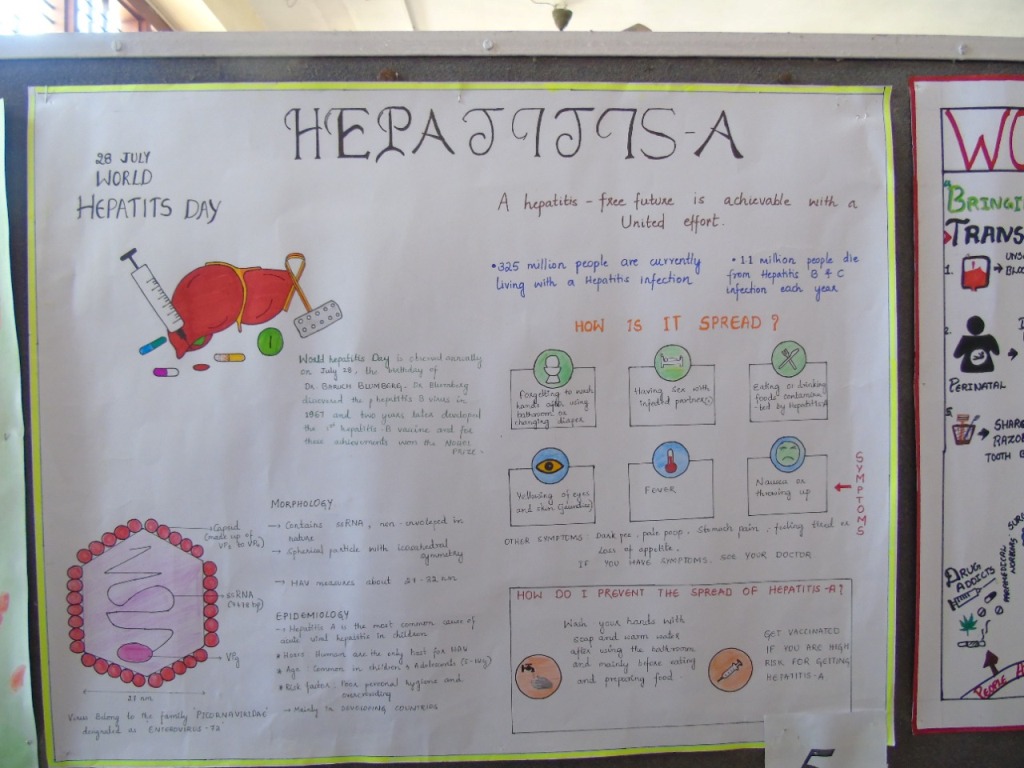 HEPATITIS-A
28 JULY
WORLD
HEPATITS DAY
A hepatitis-free future is achievable with a
United effort.
• 325 million people are currently
living with a Hepatitis infection
• 1.1 million people die
from Hepatitis B & C
infection each year
World hepatitis Day is observed annually
on July 28, the birthday of
DR. BARUCH BLUMBERG. Dr. Blumberg
discovered the hepatitis B virus in
1967 and two years later developed
the 1st hepatitis-B vaccine and for
these achievements won the NOBEL
PRIZE.
HOW IS IT SPREAD?
Forgetting to wash
hands after using
bathroom or
changing diaper
Having sex with
infected partners
Eating or drinking
foods contamina
-ted by Hepatitis A
Yellowing of eyes
and skin (jaundice)
FEVER
Nausea or
throwing up
SYMPTOMS
OTHER SYMPTOMS: Dark pee, pale poop, Stomach pain, feeling tired or
Loss of appetite.
IF YOU HAVE SYMPTOMS, SEE YOUR DOCTOR
MORPHOLOGY
→ Contains ssRNA, non-enveloped in
nature
→ Spherical particle with icosahedral
symmetry
→ HAV measures about
Capsid
(made up of
VP1 to VP3)
ssRNA
VPg
27 nm
Virus belong to the family 'PICORNAVIRIDAE'
designated as ENTEROVIRUS-72
EPIDEMIOLOGY
→ Hepatitis A is the most common cause of
acute viral hepatitis in children
Host: Humans are the only host for HAV
Age: Common in children & Adolescents
Risk factor: Poor personal hygiene and
overcrowding
→ Mainly in DEVELOPING COUNTRIES
HOW DO I PREVENT THE SPREAD OF HEPATITIS-A?
Wash your hands with
soap and warm water
after using the bathroom
and mainly before eating
and preparing food.
GET VACCINATED
IF YOU ARE HIGH
RISK FOR GETTING
HEPATITIS-A
5
WO
BRINGI
TRANS
1.
2.
PERINATAL
SHAR
RAZOR
TOOTH B
DRUG
ADDICTS
PEOPLE